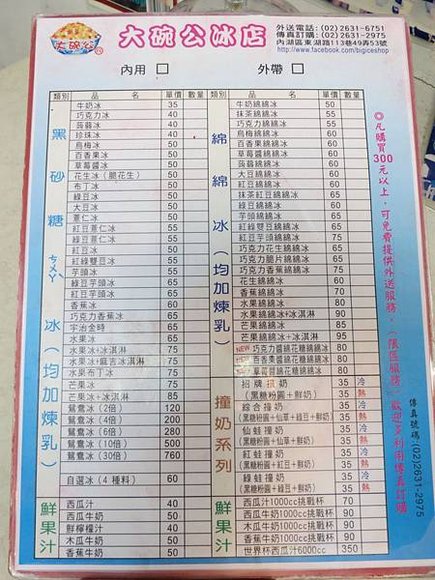 大碗公
大碗公冰店
外送電話：(02)2631-6751
傳真訂購：(02)2631-2975
內湖區東湖路113巷49弄53號
http://www.facebook.com/bigiceshop
內用 □ 外帶 □
類別 品名 單價 數量
黑砂糖ㄘㄨㄚˋ冰（均加煉乳）
牛奶冰 35
巧克力冰 40
蒟蒻冰 40
珍珠冰 40
烏梅冰 50
百香果冰 50
草莓醬冰 50
花生冰（脆花生） 50
布丁冰 50
綠豆冰 50
大豆冰 50
薏仁冰 50
紅豆薏仁冰 55
綠豆薏仁冰 55
紅豆冰 50
紅綠雙豆冰 55
芋頭冰 55
綠豆芋頭冰 65
紅豆芋頭冰 65
花生芋頭冰 65
巧克力香蕉冰 65
宇治金時 65
水果冰 65
水果冰+冰淇淋 75
水果冰+麻吉冰淇淋 75
水果布丁冰 75
芒果冰 75
芒果冰+冰淇淋 85
鴛鴦冰（2倍） 120
鴛鴦冰（4倍） 200
鴛鴦冰（6倍） 280
鴛鴦冰（10倍） 500
鴛鴦冰（30倍） 760
自選冰（4 種料） 60
鮮果汁
西瓜汁 40
西瓜牛奶 50
鮮檸檬汁 40
木瓜牛奶 50
香蕉牛奶 50
類別 品名 單價 數量
綿綿冰（均加煉乳）
牛奶綿綿冰 50
抹茶綿綿冰 55
巧克力綿綿冰 55
烏梅綿綿冰 60
百香果綿綿冰 60
草莓醬綿綿冰 60
蒟蒻綿綿冰 60
大豆綿綿冰 60
紅豆綿綿冰 60
綠豆綿綿冰 60
薏仁綿綿冰 60
芋頭綿綿冰 65
抹茶紅豆綿綿冰 65
紅綠雙豆綿綿冰 65
紅豆芋頭綿綿冰 75
花生芋頭綿綿冰 75
巧克力香蕉綿綿冰 75
巧克力脆片綿綿冰 65
巧克力香蕉綿綿冰 75
花生綿綿冰 60
香蕉綿綿冰 70
水果綿綿冰 80
水果綿綿冰+冰淇淋 90
芒果綿綿冰 85
芒果綿綿冰+冰淇淋 95
NEW 巧克力醬綿花糖綿綿冰 80
NEW 百香果醬綿花糖綿綿冰 80
NEW 草莓醬綿花糖綿綿冰 80
撞奶系列
招牌撞奶 35 冷
（黑糖粉圓+鮮奶） 35 熱
綜合撞奶 35 冷
（黑糖粉圓+仙草+鮮奶） 35 熱
仙蛙撞奶 35 冷
（黑糖粉圓+仙草+鮮奶） 35 熱
紅蛙撞奶 35 冷
（黑糖粉圓+紅豆+鮮奶） 35 熱
綠蛙撞奶 35 冷
（黑糖粉圓+綠豆+鮮奶） 35 熱
鮮果汁
西瓜汁1000cc挑戰杯 70
西瓜牛奶1000cc挑戰杯 90
木瓜牛奶1000cc挑戰杯 90
香蕉牛奶1000cc挑戰杯 90
世界杯西瓜汁6000cc 350
◎凡購買300元以上，可免費提供外送服務。（限區服務）歡迎多利用傳真訂購
傳真號碼：(02)2631-2975